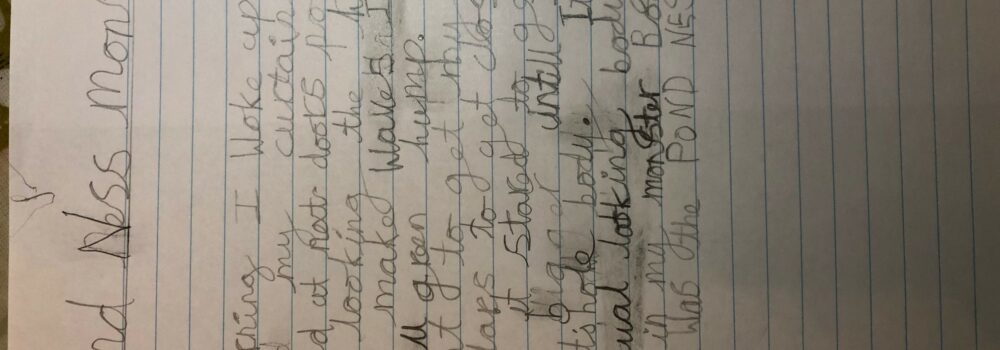 nd Ness Mons
rning I woke up
d my curtain
d at dooks po
looking the
make waves
ll green hump.
t to get my
lars To get clos
it Stared to ge
bigger untill
t's hole body. I
ual looking bod
in my monster Bo
Was the POND NES